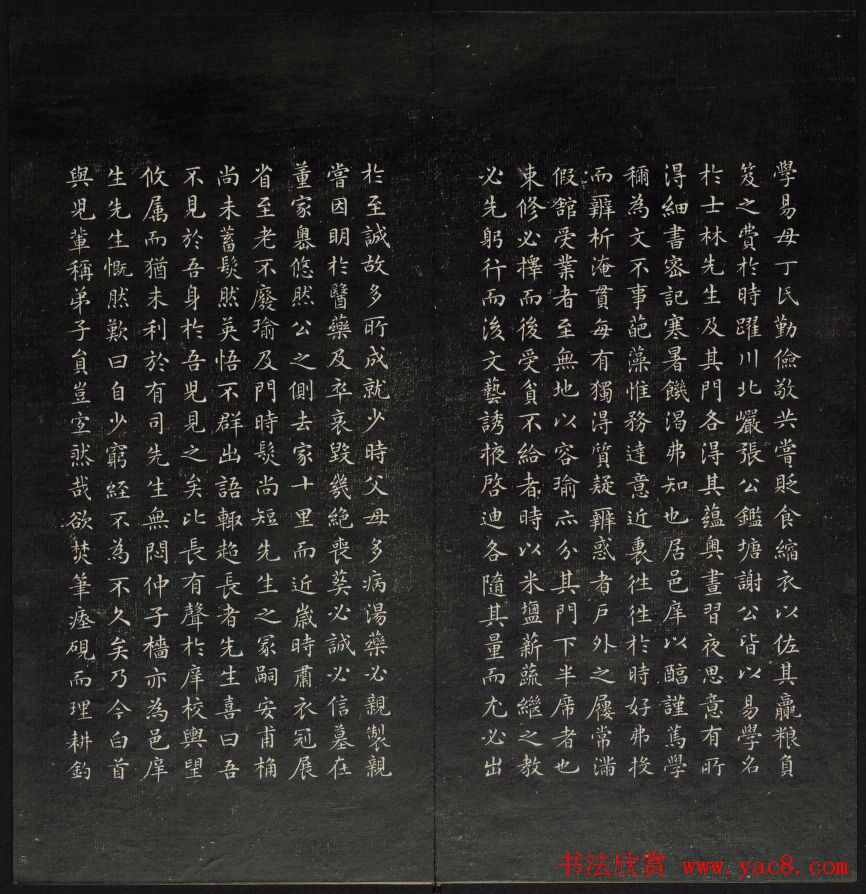 學易母丁氏勤儉敬共嘗貶食縮衣以佐其羸粮負
笈之費於時躍川北巗張公鑑塘謝公皆以易學名
於士林先生及其門各得其蘊奧晝習夜思意有所
得細書密記寒暑饑渴弗知也居邑庠以醕謹篤學
稱為文不事葩藻惟務達意近裏徃徃於時好弗投
而辯析淹貫每有獨得質疑辯惑者戶外之屨常滿
假舘受業者至無地以容瑜亦分其門下半席者也
束修必擇而後受貟不給者時以米壇薪蔬繼之教
必先躬行而後文藝誘掖啓迪各隨其量而尤必出
於至誠故多所成就少時父母多病湯藥必親製親
嘗因明於醫藥及卒哀毀幾絕喪葬必誠必信墓在
董家嶴悠然公之側去家十里而近歲時肅衣冠展
省至老不廢瑜及門時髮尚短先生之冢嗣安甫桷
尚未蓄髮然英悟不群出語輙超長者先生喜曰吾
不見於吾身於吾兒見之矣比長有聲於庠校輿望
攸属而猶未利於有司先生無悶仲子檣亦為邑庠
生先生慨然歎曰自少窮經不為不久矣乃今白首
與兒輩稱弟子貟豈宜然哉欲焚筆瘞硯而理耕釣
书法欣赏 www.yac8.com